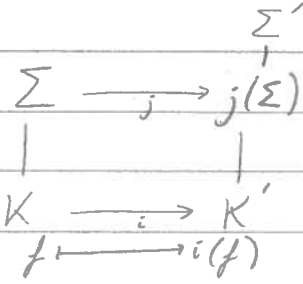 Σ′
Σ j j(Σ)
K i K′
f ⟼ i(f)